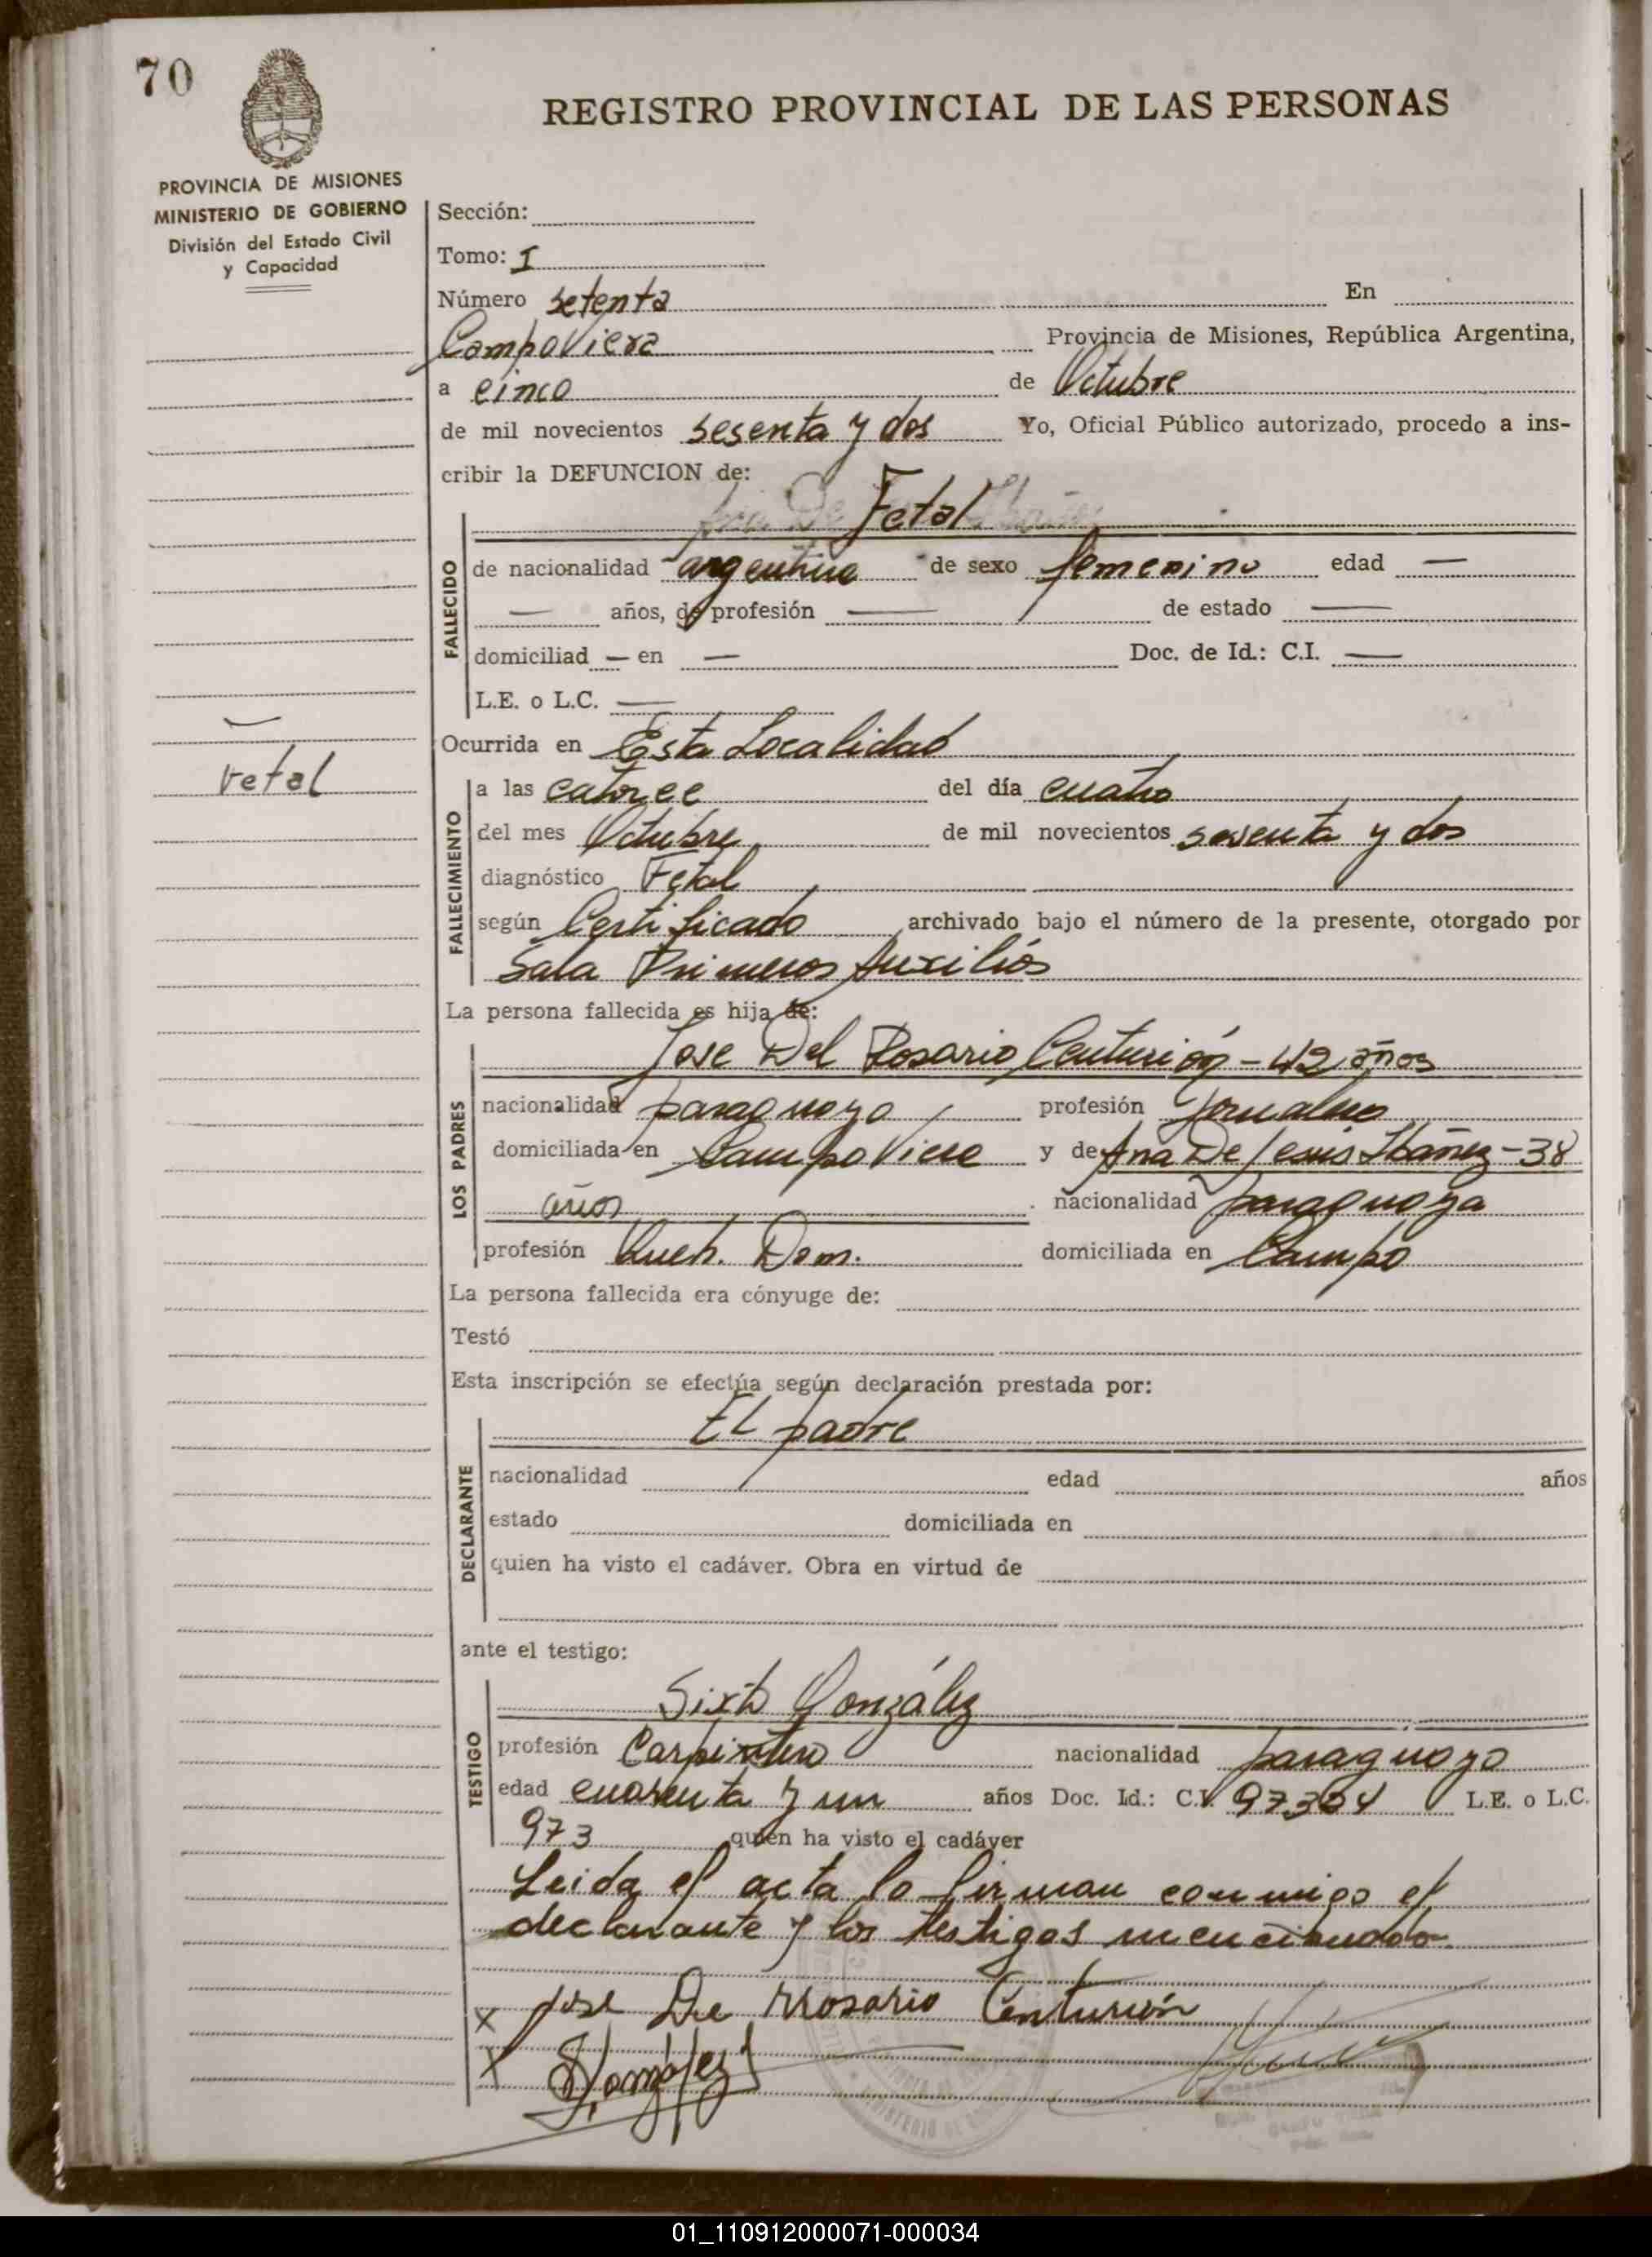 70
REGISTRO PROVINCIAL DE LAS PERSONAS
PROVINCIA DE MISIONES
MINISTERIO DE GOBIERNO
División del Estado Civil
y Capacidad
Sección:
Tomo: I
Número setenta En
Campo Viera Provincia de Misiones, República Argentina,
a cinco de Octubre
de mil novecientos sesenta y dos Yo, Oficial Público autorizado, procedo a ins-
cribir la DEFUNCION de:
Fetal
FALLECIDO
de nacionalidad argentina de sexo femenino edad —
— años, de profesión — de estado —
domiciliad — en — Doc. de Id.: C.I. —
L.E. o L.C. —
Ocurrida en Esta Localidad
Fetal
FALLECIMIENTO
a las catorce del día cuatro
del mes Octubre de mil novecientos sesenta y dos
diagnóstico Fetal
según Certificado archivado bajo el número de la presente, otorgado por
Sala Primeros Auxiliós
La persona fallecida es hija de:
LOS PADRES
Jose Del Rosario Centurión - 42 años
nacionalidad paraguayo profesión jornalero
domiciliada en Campo Viera y de Ana De Jesus Ibáñez - 38
años nacionalidad paraguaya
profesión Queh. Dom. domiciliada en Campo
La persona fallecida era cónyuge de:
Testó
Esta inscripción se efectúa según declaración prestada por:
DECLARANTE
EL padre
nacionalidad edad años
estado domiciliada en
quien ha visto el cadáver. Obra en virtud de
ante el testigo:
TESTIGO
Sixto González
profesión Carpintero nacionalidad paraguayo
edad cuarenta y un años Doc. Id.: C.I. L.E. o L.C.
973 quien ha visto el cadáver
Leida el acta la firman conmigo el
declarante y los testigos mencionado
x Jose De Rrosario Centurión
x S. González
01_110912000071-000034